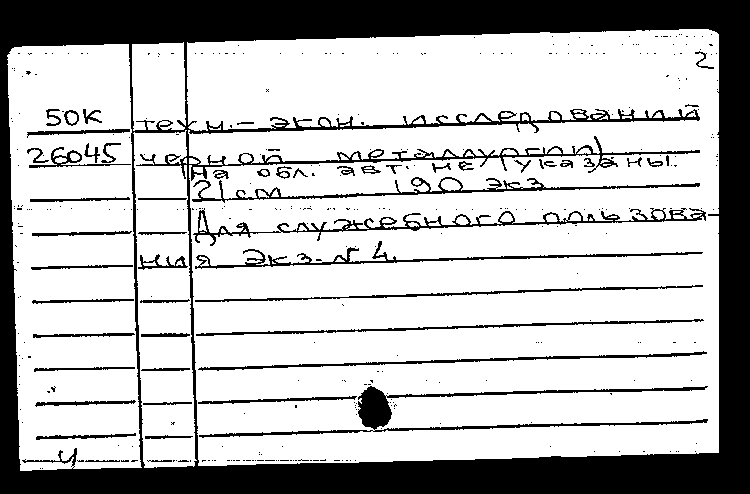 2
50К техн.-экон. исследований
26045 черной металлургии)
На обл. авт. не указаны.
21 см 190 экз
Для служебного пользова-
ния экз. N 4.
ч